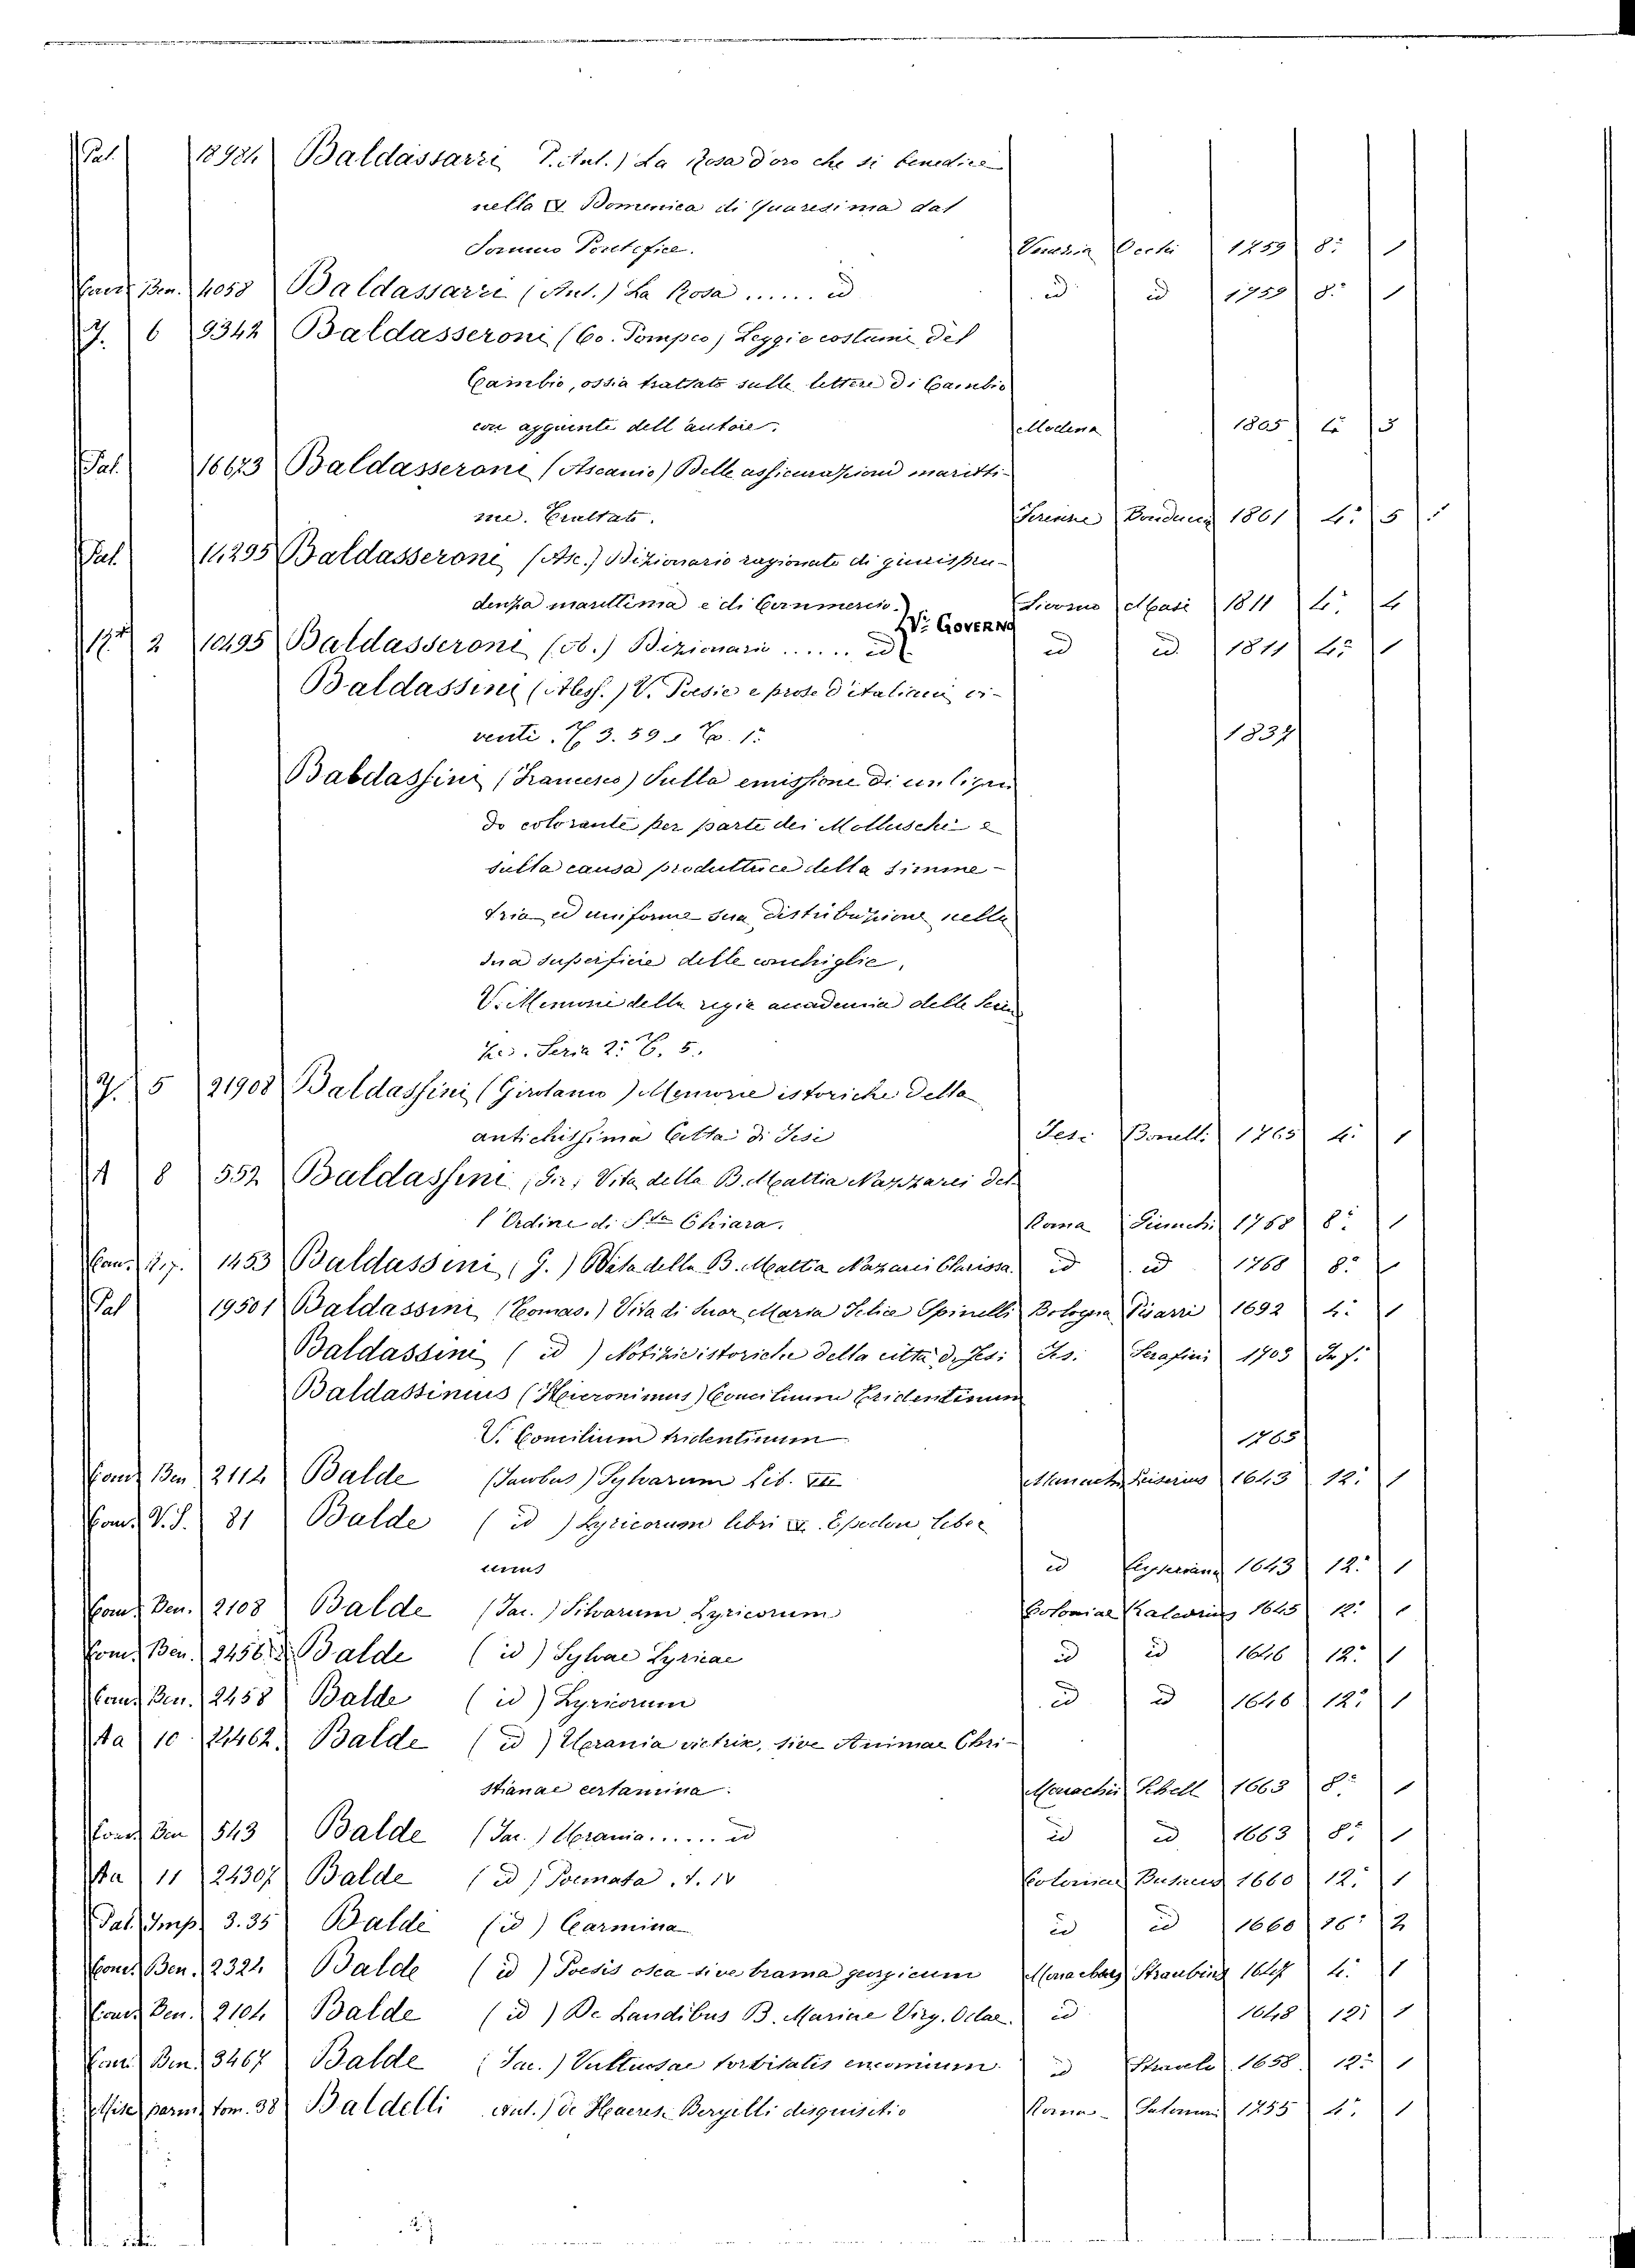 Pal. 18984 Baldassarri P. Ant.) La Rosa d'oro che si benedice
nella IV Domenica di Quaresima dal
Sommo Pontefice. Venezia Occhi 1759 8: 1
Ben. 4058 Baldassarri (Ant.) La Rosa ...... id id id 1759 8: 1
6 9342 Baldasseroni (Co. Pompeo) Leggi e costumi del
Cambio, ossia trattato sulle lettere di Cambio
con aggiunte dell'autore. Modena 1805 4: 3
Pal. 16673 Baldasseroni (Ascanio) Delle assicurazioni maritti-
me. Trattato. Firenze 1801 4: 5
Pal. 11295 Baldasseroni (Asc.) Dizionario ragionato di giurispru-
denza marittima e di Commercio. Livorno Masi 1811 4: 4
Vi Governo
2 10495 Baldasseroni Dizionario ...... id id id 1811 4: 1
Baldassini (Aless.) V. Poesie e prose d'italiani vi-
venti. 3. 59. 1837
Baldassini (Francesco) Sulla emissione di un liqui
do colorante per parte dei Molluschi e
sulla causa produttrice della simme-
tria ed uniforme sua distribuzione nella
sua superficie delle conchiglie.
V. Memorie della regia accademia delle Scien
ze. Serie 2: T. 5.
5 21908 Baldassini (Girolamo) Memorie istoriche della
antichissima Città di Jesi Jesi Bonelli 1765 4: 1
8 552 Baldassini, Gir, Vita della B. Mattia Nazzarei del
l'Ordine di Sta Chiara. Roma 8: 1
1453 Baldassini (G.) Vita della B. Mattia Nazarei Clarissa id id 1768 8:
Pal 19501 Baldassini (Tomas.) Vita di Suor Maria Felice Spinelli Bologna Pisarri 1692 4: 1
Baldassini (id) Notizie istoriche della città di Jesi Jes. Serafini 1703 In f:
Baldassinius (Hieronimus) Concilium Tridentinum
V. Concilium tridentinum 1765
Ben 2114 Balde (Jacobus) Sylvarum Lib. VII Monach 1643 12: 1
V. S. 81 Balde (id) Lyricorum libri IV. Epodon liber
unus id 1643 12: 1
Ben. 2108 Balde (Jac.) Silvarum Lyricorum Coloniae Kalcovius 1645 12: 1
Ben. 2456 Balde (id) Sylvae Lyricae id id 1646 12: 1
Ben. 2458 Balde (id) Lyricorum id id 1646 12: 1
Aa 10 21462 Balde (id) Urania victrix, sive Animae Chri-
stianae certamina. Monachii Schell 1663 8: 1
Ben 543 Balde (Jac.) Urania ...... id id id 1663 8: 1
Aa 11 24307 Balde (id) Poemata. t. IV Coloniae Busaeus 1660 12: 1
Pal. Imp. 3.35 Balde (id) Carmina id id 1660 16: 2
Ben. 2324 Balde (id) Poesis osca sive drama georgicum Monachaes Straubing 1647 4: 1
Ben. 2104 Balde (id) De Laudibus B. Mariae Virg. Odae. id 1648 12: 1
Ben. 3467 Balde (Jac.) Vultuosae torvitatis encomium id Straub 1658 12: 1
Misc parm tom. 38 Baldelli Ant.) de Haeresi Bergelli disquisitio Roma Salomoni 1755 4: 1